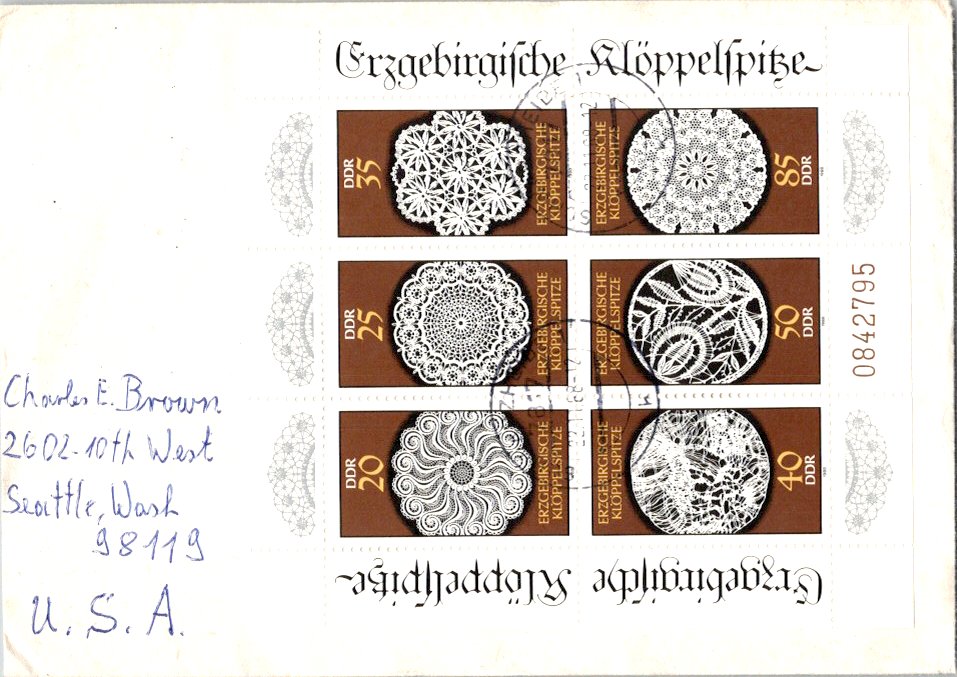 Erzgebirgische Klöppelspitze
DDR 35
ERZGEBIRGISCHE
KLÖPPELSPITZE
ERZGEBIRGISCHE
KLÖPPELSPITZE
85 DDR
DDR 25
ERZGEBIRGISCHE
KLÖPPELSPITZE
ERZGEBIRGISCHE
KLÖPPELSPITZE
50 DDR
0842795
DDR 20
ERZGEBIRGISCHE
KLÖPPELSPITZE
ERZGEBIRGISCHE
KLÖPPELSPITZE
40 DDR
Erzgebirgische Klöppelspitze
Charles E. Brown
2602-10th West
Seattle, Wash
98119
U.S.A.